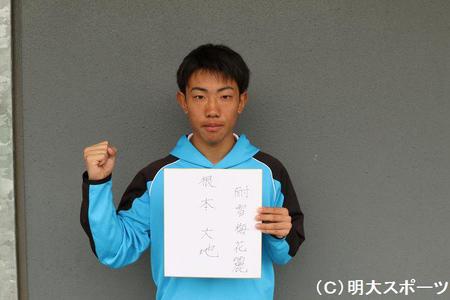 耐雪梅花麗
根本大地
(C)明大スポーツ